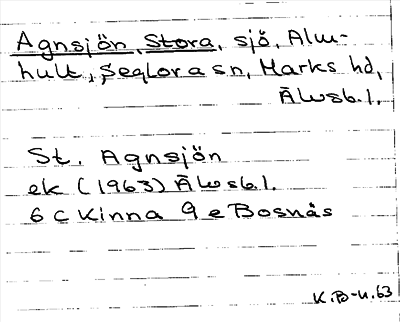 Agnsjön, Stora, sjö, Alm-
hult, Seglora sn, Marks hd,
Älvsb. l.
St. Agnsjön
ek (1963) Älvsb. l.
6 c Kinna 9 e Bosnäs
K.B-u. 63